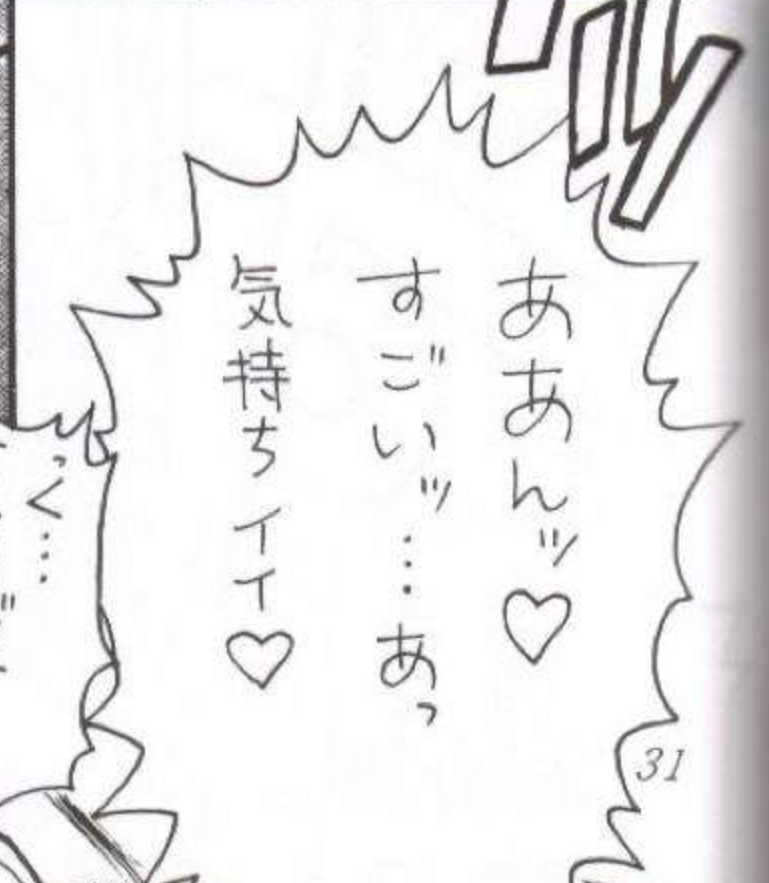 ああんッ♡
すごいッ…あっ
気持ちイイ♡
っく…
31